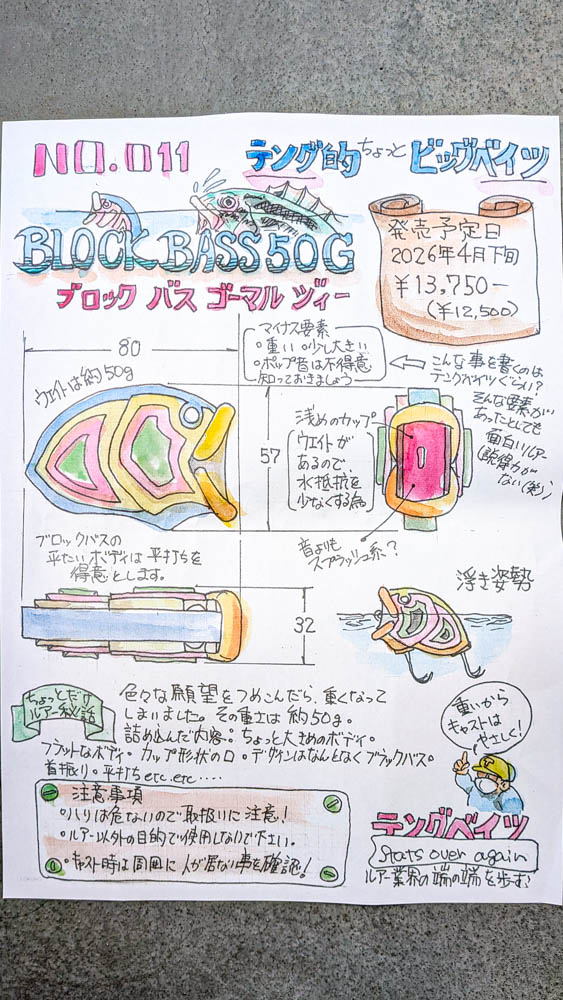 NO.011
テング的ちょっとビッグベイツ
BLOCK BASS 50G
ブロック バス ゴーマル ヅィー
発売予定日
2026年4月下旬
¥13,750-
(¥12,500)
80
マイナス要素
・重い ・少し大きい
・ポップ音は不得意
知っておきましょう
こんな事を書くのは
テングベイツぐらい!?
そんな要素が
あったとしても
面白いルアー
(説得力が
ない(笑))
ウェイトは約50g
57
浅めのカップ
ウエイトが
あるので、
水抵抗を
少なくする為
音よりも
スプラッシュ系?
ブロックバスの
平たいボディは平打ちを
得意とします。
32
浮き姿勢
ちょっとだけ
ルアー秘話
色々な願望をつめこんだら、重くなって
しまいました。その重さは約50g。
詰め込んだ内容:ちょっと大きめのボディ。
フラットなボディ・カップ形状の口・デザインはなんとなくブラックバス。
首振り・平打ちetc.etc.....
重いから
キャストは
やさしく!
注意事項
・ハリは危ないので取扱いに注意!
・ルアー以外の目的で使用しないで下さい。
・キャスト時は周囲に人が居ない事を確認!
テングベイツ
Stats over again
ルアー業界の端の端を歩む?